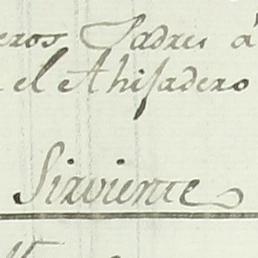 eros Padres á
el Ahijadero
Sirviente